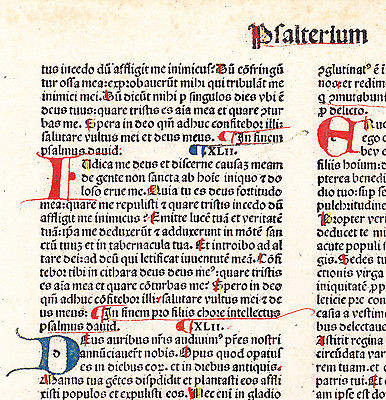 Psalterium
tus incedo dũ affligit me inimicus? Dũ cõfringũ
tur ossa mea: exprobauerũt mihi qui tribulãt me
inimici mei. Dũ dicũt mihi p singulos dies vbi ẽ
deus tuus: quare tristis es aĩa mea et quare ptur
bas me. Spera in deo qm̃ adhuc cõfitebor illi:
salutare vultus mei et deus meus. In finem
psalmus dauid. XLII.
Iudica me deus et discerne causaʒ meam
de gente non sancta ab hoĩe iniquo ⁊ do
loso erue me. Quia tu es deus fortitudo
mea: quare me repulisti ⁊ quare tristis incedo dũ
affligit me inimicus? Emitte lucẽ tuã et veritatẽ
tuã: ipsa me deduxerũt ⁊ adduxerunt in mõtẽ san
ctũ tuuʒ et in tabernacula tua. Et introibo ad al
tare dei: ad deũ qui letificat iuuentutẽ meã. Cõfi
tebor tibi in cithara deus deus me⁹: quare tristis
es aĩa mea et quare cõturbas me? Spero in deo
qm̃ adhuc cõfitebor illi: salutare vultus mei ⁊ de
us meus. In finem pro filiis chore intellectus
psalmus dauid. XLII.
Deus auribus nr̃is audiuim⁹ pr̃es nostri
annũciauert̃ nobis. Opus quod opatus
es in diebus eoꝝ: et in diebus antiquis.
Manus tua gẽtes dispdidit et plantasti eos affli
xisti populos et expulisti eos. Nec eni in gladio
ꝓdelicto.
ego
cibu
filiis hoium:
dea est gratia
dio tuo: sup fe
pulchritudine
Propter veri
deducet te mi
acute populi i
us. Sedes tu
ectionis virga
iniquitatẽ
leticie pre con
casia a vestim
bus delectaueru
Astitit regina
circũdata vari
rem tuam: et
bus tui. Et c